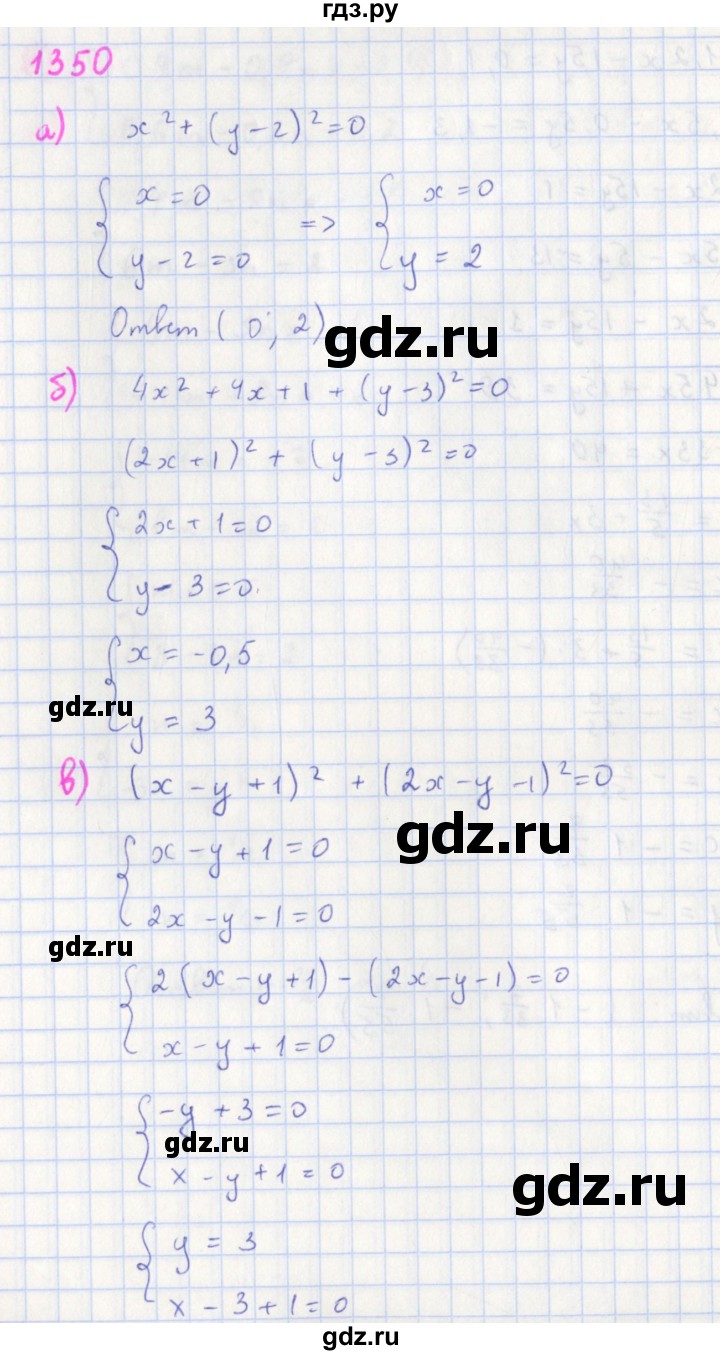 гдз.ру
1350
а) x² + (y - 2)² = 0
{ x = 0 => { x = 0
y - 2 = 0 y = 2
Ответ (0; 2)
gdz.ru
б) 4x² + 4x + 1 + (y - 3)² = 0
(2x + 1)² + (y - 3)² = 0
{ 2x + 1 = 0
y - 3 = 0.
{ x = -0,5
gdz.ru
y = 3
в) (x - y + 1)² + (2x - y - 1)² = 0
gdz.ru
{ x - y + 1 = 0
2x - y - 1 = 0
gdz.ru
{ 2(x - y + 1) - (2x - y - 1) = 0
x - y + 1 = 0
{ -y + 3 = 0
gdz.ru
x - y + 1 = 0
gdz.ru
{ y = 3
x - 3 + 1 = 0
gdz.ru